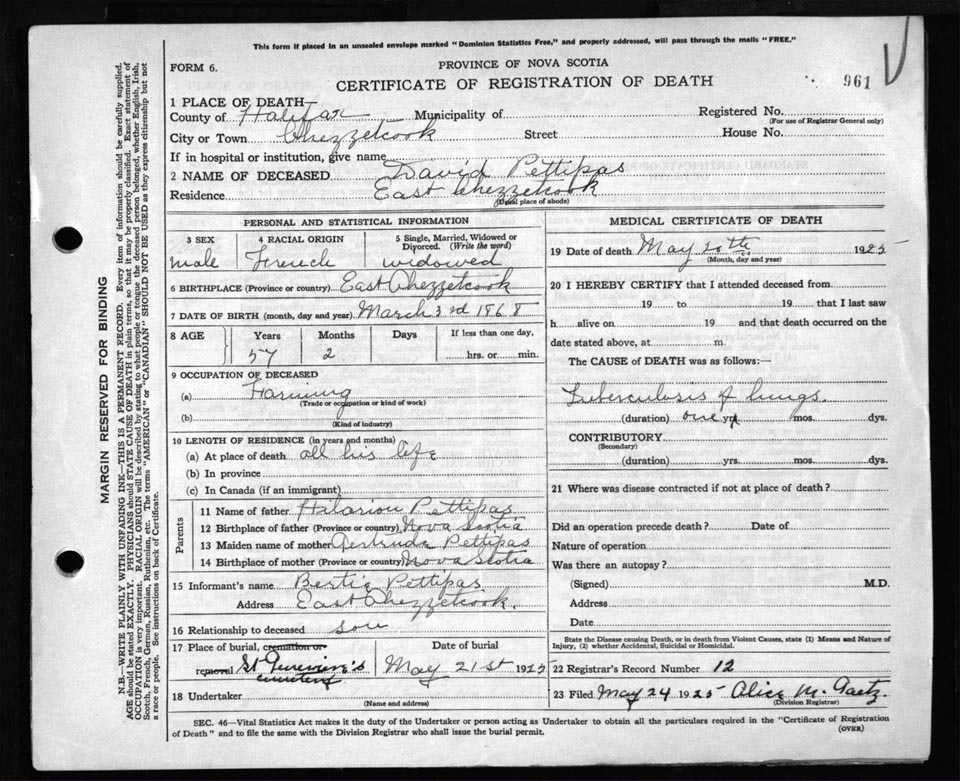 This form if placed in an unsealed envelope marked "Dominion Statistics Free," and properly addressed, will pass through the mails "FREE."
FORM 6.
PROVINCE OF NOVA SCOTIA
CERTIFICATE OF REGISTRATION OF DEATH
961
1 PLACE OF DEATH—
County of Halifax Municipality of Registered No.
(For use of Registrar General only)
City or Town Chezzetcook Street House No.
If in hospital or institution, give name
2 NAME OF DECEASED David Pettipas
Residence East Chezzetcook
(Usual place of abode)
PERSONAL AND STATISTICAL INFORMATION
3 SEX 4 RACIAL ORIGIN 5 Single, Married, Widowed or Divorced. (Write the word)
male French widowed
6 BIRTHPLACE (Province or country) East Chezzetcook
7 DATE OF BIRTH (month, day and year) March 3rd 1868
8 AGE Years Months Days If less than one day,
57 2 hrs. or min.
9 OCCUPATION OF DECEASED
(a) Farming
(Trade or occupation or kind of work)
(b)
(Kind of industry)
10 LENGTH OF RESIDENCE (in years and months)
(a) At place of death all his life
(b) In province
(c) In Canada (if an immigrant)
Parents
11 Name of father Hilarion Pettipas
12 Birthplace of father (Province or country) Nova Scotia
13 Maiden name of mother Gertrude Pettipas
14 Birthplace of mother (Province or country) Nova Scotia
15 Informant's name Bertie Pettipas
Address East Chezzetcook.
16 Relationship to deceased son
17 Place of burial, cremation or removal Date of burial
St cemetery May 21st 1925
18 Undertaker
(Name and address)
MEDICAL CERTIFICATE OF DEATH
19 Date of death May 20th 1925
(Month, day and year)
20 I HEREBY CERTIFY that I attended deceased from
19 to 19 that I last saw
h alive on 19 and that death occurred on the
date stated above, at m.
The CAUSE of DEATH was as follows:—
Tuberculosis of lungs.
(duration) one yrs. mos. dys.
CONTRIBUTORY
(Secondary)
(duration) yrs. mos. dys.
21 Where was disease contracted if not at place of death?
Did an operation precede death? Date of
Nature of operation
Was there an autopsy?
(Signed) M.D.
Address
Date
State the Disease causing Death, or in death from Violent Causes, state (1) Means and Nature of
Injury, (2) whether Accidental, Suicidal or Homicidal.
22 Registrar's Record Number 12
23 Filed May 24 1925 Alice M. Gaetz
(Division Registrar)
SEC. 46—Vital Statistics Act makes it the duty of the Undertaker or person acting as Undertaker to obtain all the particulars required in the "Certificate of Registration
of Death" and to file the same with the Division Registrar who shall issue the burial permit.
(OVER)
MARGIN RESERVED FOR BINDING
N.B.—WRITE PLAINLY WITH UNFADING INK—THIS IS A PERMANENT RECORD. Every item of information should be carefully supplied.
AGE should be stated EXACTLY. PHYSICIANS should STATE CAUSE OF DEATH in plain terms, so that it may be properly classified. Exact statement of
OCCUPATION is very important. RACIAL ORIGIN will be described by stating to what people or tongue the deceased person belonged, whether English, Irish,
Scotch, French, German, Russian, Ruthenian, etc. The terms "AMERICAN" or "CANADIAN" SHOULD NOT BE USED as they express citizenship but not
a race or people. See instructions on back of Certificate.